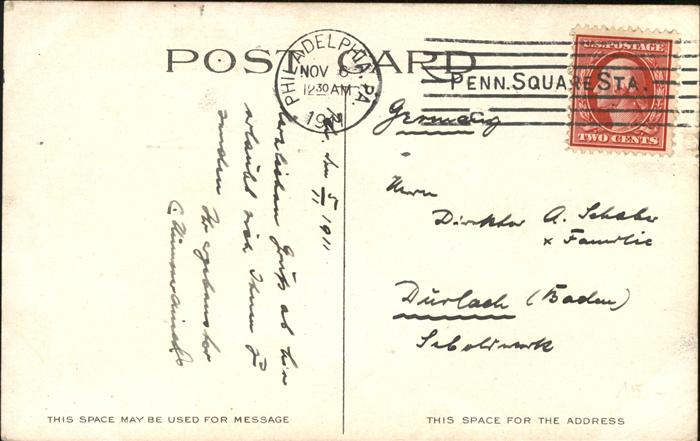 POST CARD
PHILADELPHIA, PA.
NOV 6
12 30 AM
1911
PENN. SQUARE STA.
U.S. POSTAGE
TWO CENTS
Germany
Herrn
Direktor A. Schaber
x Familie
Durlach (Baden)
Seboldwerk
Phil., den 5/11 1911
herzlichen Gruß ab hier
erlaubt sich Ihnen z
senden Ihr ergebenster
THIS SPACE MAY BE USED FOR MESSAGE
THIS SPACE FOR THE ADDRESS